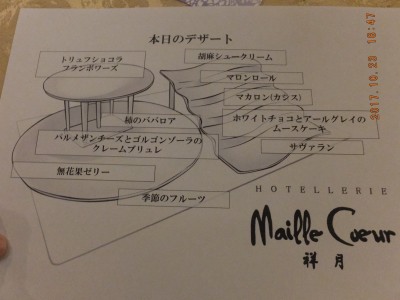 本日のデザート
トリュフショコラ
フランボワーズ
胡麻シュークリーム
マロンロール
マカロン(カシス)
ホワイトチョコとアールグレイの
ムースケーキ
サヴァラン
柿のババロア
パルメザンチーズとゴルゴンゾーラの
クレームブリュレ
無花果ゼリー
季節のフルーツ
HOTELLERIE
Maille Cœur
祥月
2017.10.23 18:47